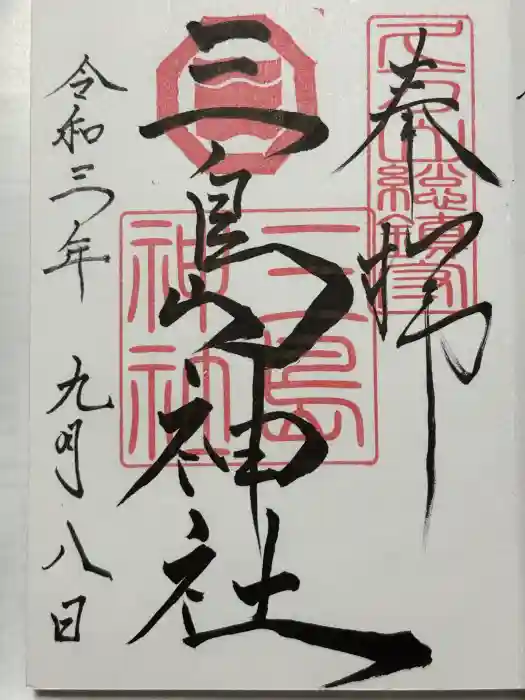 奉拝
三島神社
三島
神社
令和三年 九月八日